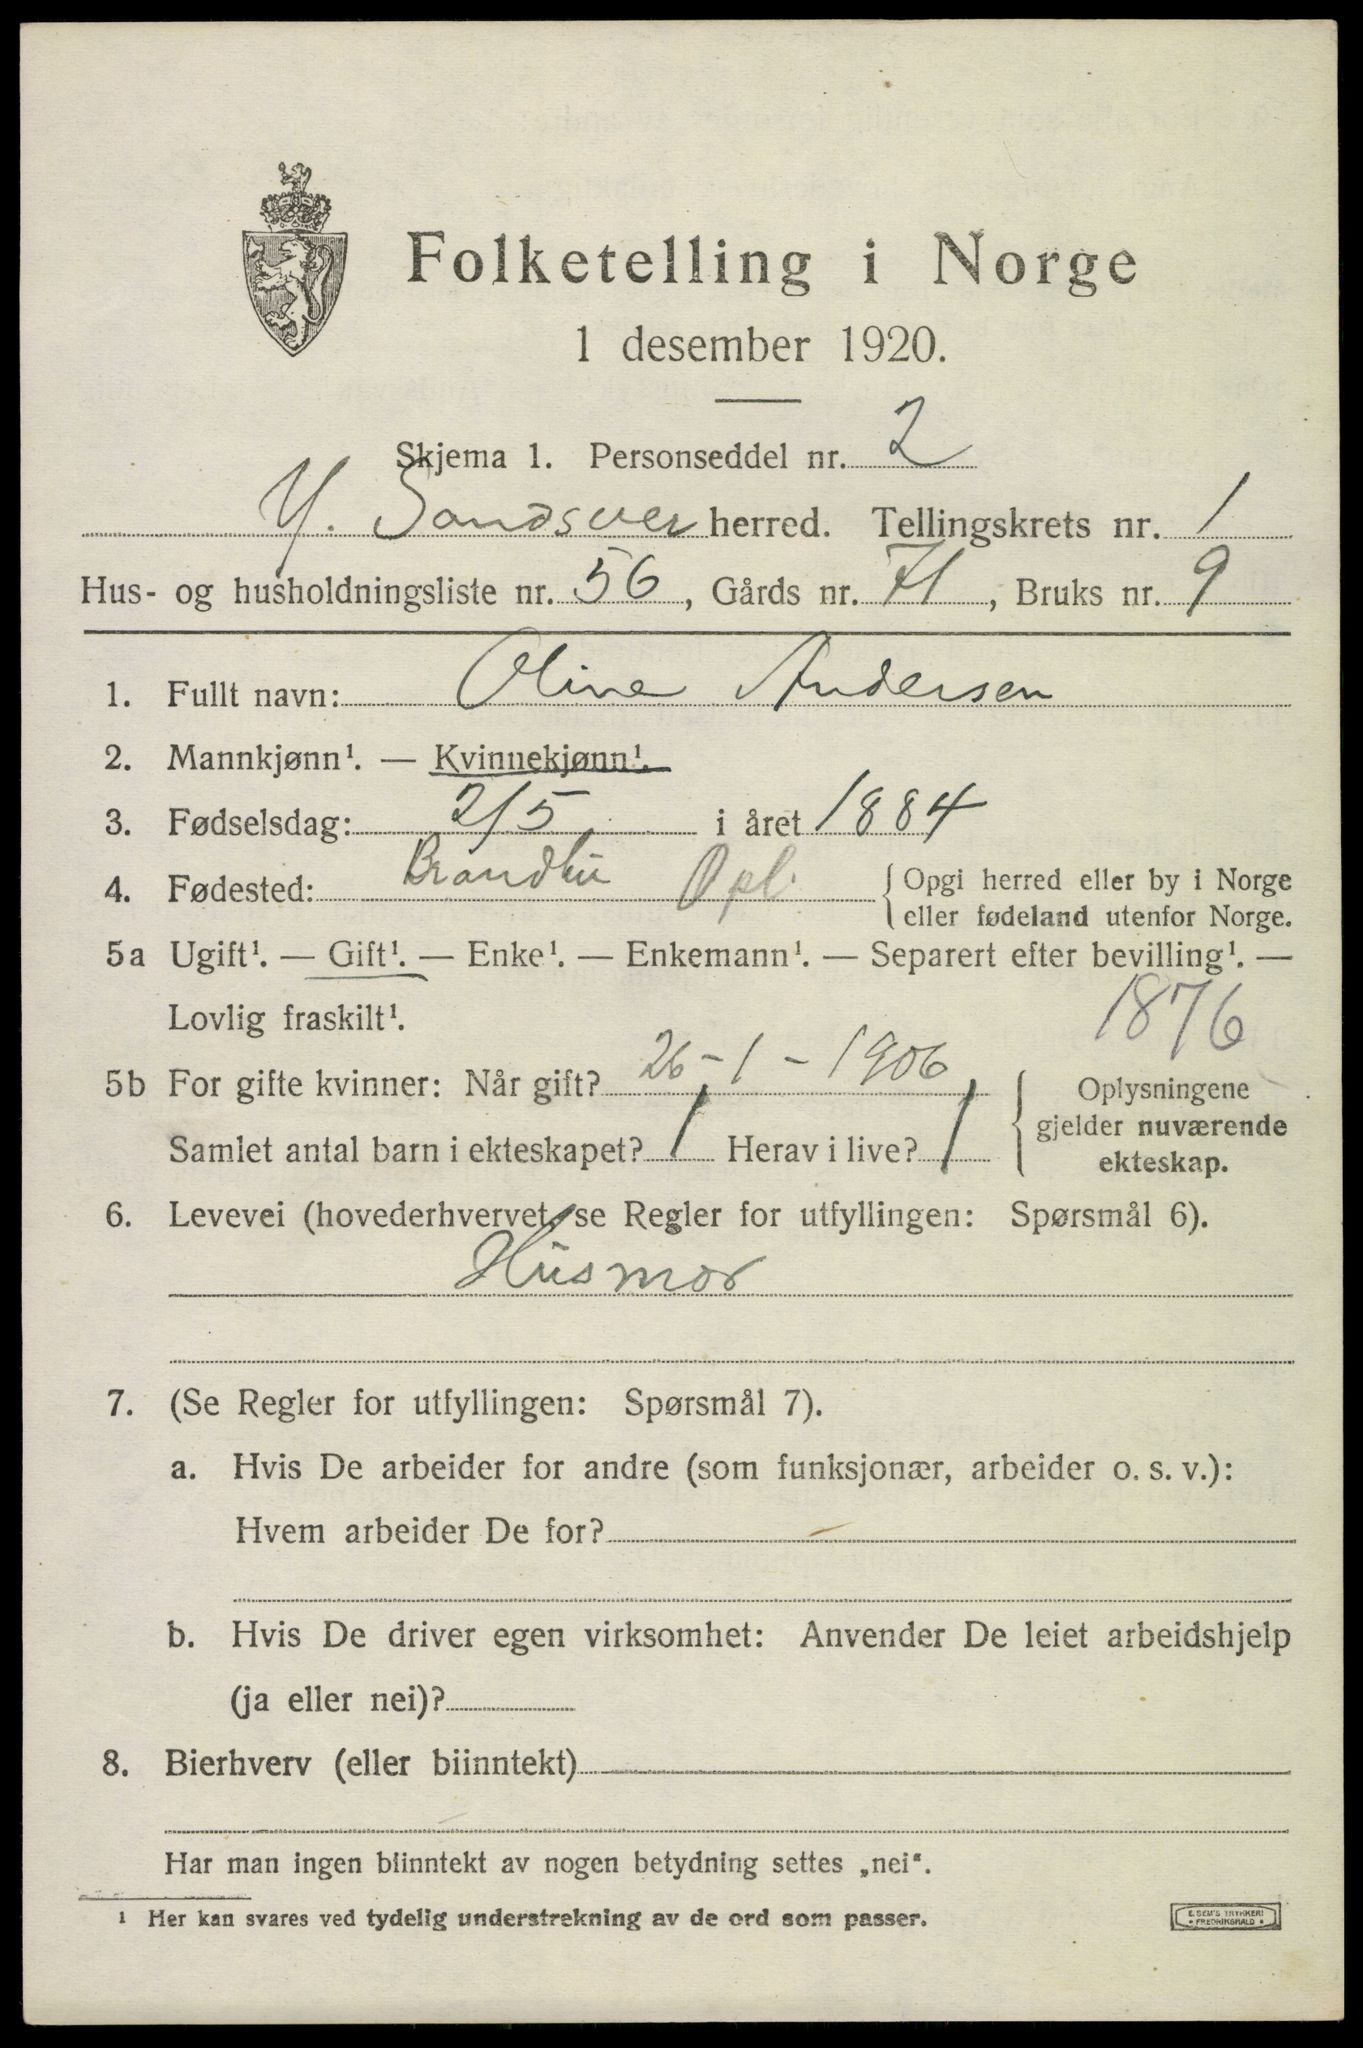 Folketelling i Norge
1 desember 1920.
Skjema 1. Personseddel nr. 2
Y. Sandsver herred. Tellingskrets nr. 1
Hus- og husholdningsliste nr. 56, Gårds nr. 71, Bruks nr. 9
1. Fullt navn: Oline Andersen
2. Mannkjønn¹. — Kvinnekjønn¹.
3. Fødselsdag: 2/5 i året 1884
4. Fødested: Brandbu Opl. { Opgi herred eller by i Norge
eller fødeland utenfor Norge.
5a Ugift¹. — Gift¹. — Enke¹. — Enkemann¹. — Separert efter bevilling¹. —
Lovlig fraskilt¹. 1876
5b For gifte kvinner: Når gift? 26-1-1906
Samlet antal barn i ekteskapet? 1 Herav i live? 1
{ Oplysningene
gjelder nuværende
ekteskap.
6. Levevei (hovederhvervet, se Regler for utfyllingen: Spørsmål 6).
Husmor
7. (Se Regler for utfyllingen: Spørsmål 7).
a. Hvis De arbeider for andre (som funksjonær, arbeider o. s. v.):
Hvem arbeider De for?
b. Hvis De driver egen virksomhet: Anvender De leiet arbeidshjelp
(ja eller nei)?
8. Bierhverv (eller biinntekt)
Har man ingen biinntekt av nogen betydning settes „nei".
¹ Her kan svares ved tydelig understrekning av de ord som passer.
E. SEM'S TRYKKERI
• FREDRIKSHALD •